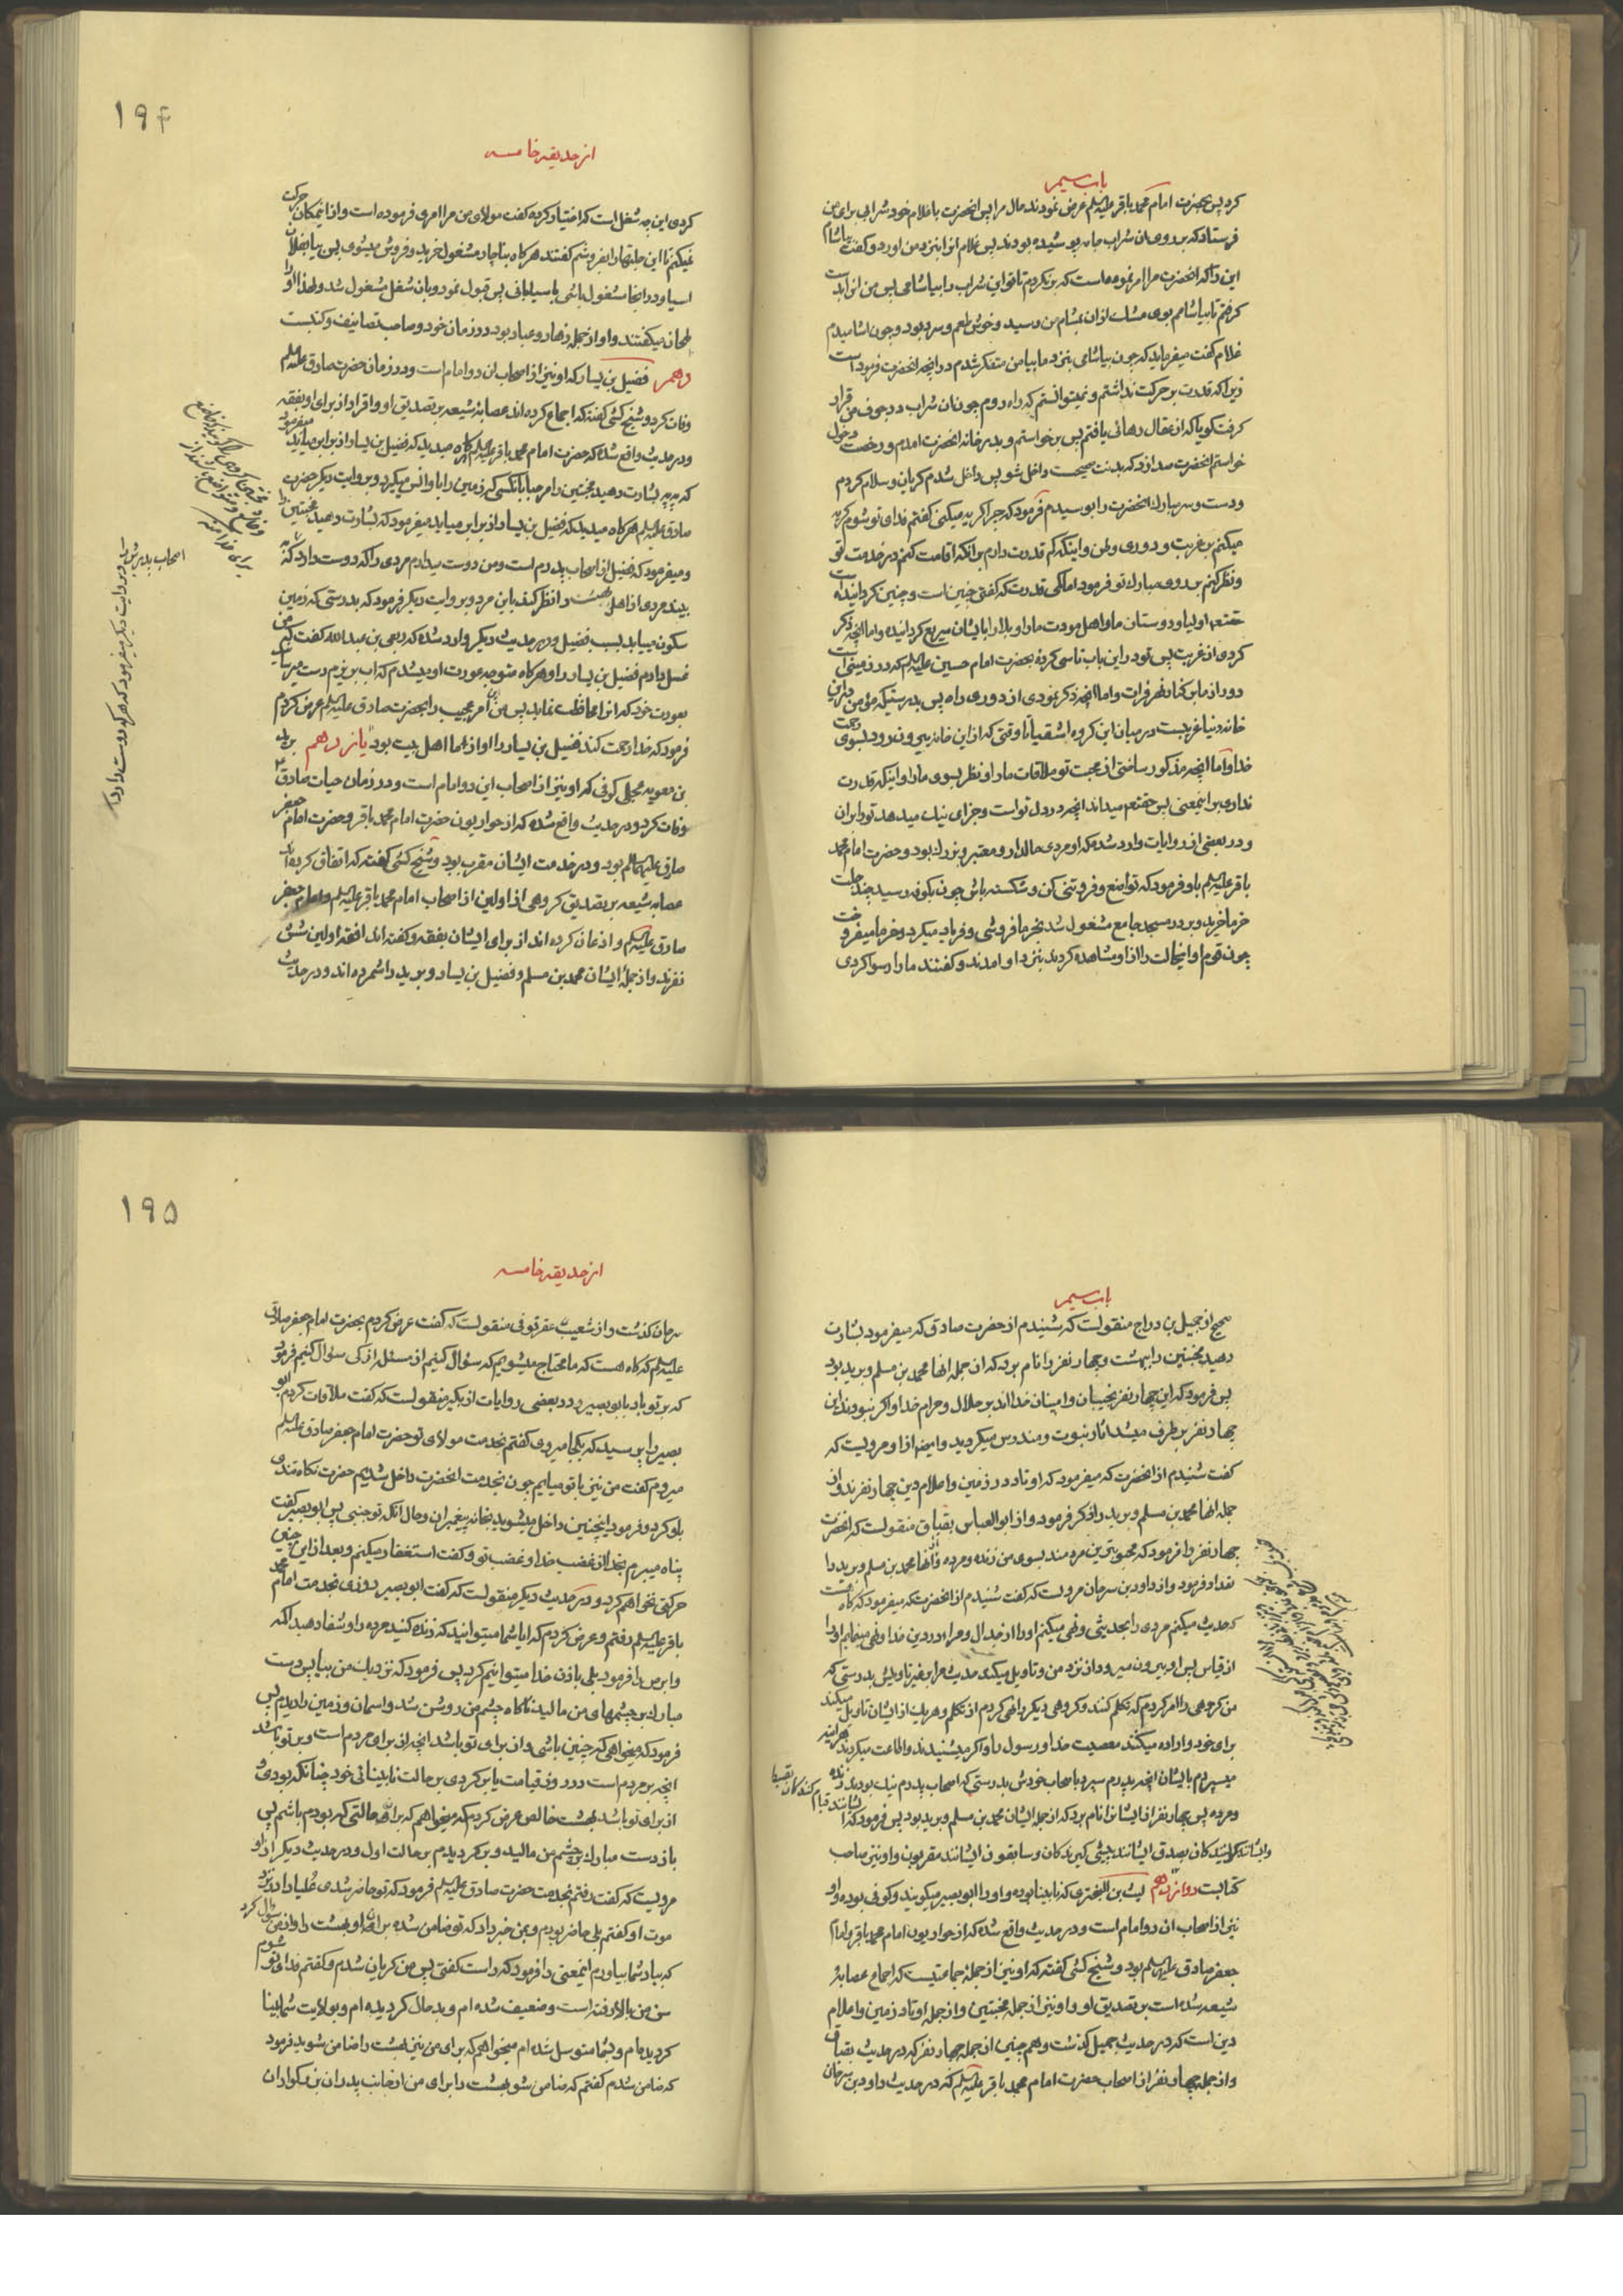 باب سیم
کرد پس بحضرت امام محمد باقر علیه السلم عرض نمودند حال مرا پس انحضرت با غلام خود شرابی برای من
فرستاد که بر روی ان شراب جامه پوشیده بودند پس غلام انرا بنزد من اورد و کفت بیاشام
این را که انحضرت مرا امر نموده است که برنکردم تا تو این شراب را بیاشامی پس من انرا بدست
کرفتم تا بیاشامم بوی مشک ازان بمشام من رسید و خوش طعم و سرد بود و چون اشامیدم
غلام کفت میفرماید که چون بیاشامی بنزد ما بیا من متفکر شدم در انچه انحضرت فرموده است
زیرا که قدرت بر حرکت نداشتم و نمیتوانستم که راه روم چون ان شراب در جوف من قرار
کرفت کویا که از عقال رهائی یافتم پس برخواستم و بدر خانه انحضرت امدم و رخصت دخول
خواستم انحضرت صدا زد که بدنت صحیحست داخل شو پس داخل شدم کریان و سلام کردم
و دست و سر مبارک انحضرت را بوسیدم فرمود که چرا کریه میکنی کفتم فدای تو شوم کریه
میکنم بر غربت و دوری وطن و اینکه کم قدرت دارم برانکه اقامت کنم در خدمت تو
و نظر کنم بروی مبارک تو فرمود اما کمی قدرت که کفتی چنین است و چنین کردانیده است
حقتعم اولیا و دوستان ما و اهل مودت ما را و بلا را بایشان سریع کردانیده و اما انچه ذکر
کردی از غربت پس تو در این باب تاسی کردهٔ بحضرت امام حسین علیه السلم که در زمینی است
دور از ما بر کنار نهر فرات و اما انچه ذکر نمودی از دوری راه پس بدرستیکه مؤمن در این
خانه دنیا غریبست در میان این کروه اشقیا تا وقتی که از این خانه بیرون رود بسوی رحمت
خدا و اما انچه مذکور ساختی از محبت تو ملاقات ما را و نظر بسوی ما را و اینکه قدرت
نداری بر اینمعنی پس حقتعم میداند انچه در دل تو است و جزای نیک میدهد تو را بر ان
و در بعضی از روایات وارد شده که او مردی مالدار و معتبر و بزرک بود و حضرت امام محمد
باقر علیه السلم باو فرمود که تواضع و فروتنی کن و شکسته باش چون بکوفه رسید چند جلت
خرما خرید و بر در مسجد جامع مشغول شد بخرما فروشی و فریاد میکرد و خرما میفروخت
چون قوم او اینحالت را از او مشاهده کردند بنزد او امدند و کفتند ما را رسوا کردی
۱۹۴
از حدیقه خامسه
کردی این چه شغل است که اختیار کرده کفت مولای من مرا امری فرموده است و از اینمکان حرکت
نمیکنم تا این جلتها را بفروشم کفتند هر کاه بناچار مشغول خرید و فروش میشوی پس بیا بفلان
اسیا و در انجا مشغول باشی باسیابانی پس قبول نمود و بان شغل مشغول شد و لهذا او را
طحان میکفتند و او از جمله زهاد و عباد بود در زمان خود و صاحب تصانیف و کتبست
دهم فضیل بن یسار که او نیز از اصحاب ان دو امام است و در زمان حضرت صادق علیه السلم
وفات کرد و شیخ کشی کفته که اجماع کرده اند عصابهٔ شیعه بر تصدیق او و اقرار از برای او بفقه
و در حدیث واقع شده که حضرت امام محمد باقر علیه السلم هر کاه میدید که فضیل بن یسار از برابر میاید میفرمود
که بشارت دهید مخبتین را مرحبا بانکسی که زمین را باو انس میکیرد و بروایت دیکر حضرت
صادق علیه السلم هر کاه میدید که فضیل بن یسار از برابر میاید میفرمود که بشارت دهید مخبتین را
و میفرمود که فضیل از اصحاب پدرم است و من دوست میدارم مردی را که دوست دارد که
ببیند مردی از اهل بهشت را نظر کند باین مرد و بروایت دیکر فرمود که بدرستی که زمین
سکون مییابد بسبب فضیل و در حدیث دیکر وارد شده که ربعی بن عبد الله کفت که من
غسل دادم فضیل بن یسار را و هر کاه متوجه عورت او میشدم که اب بریزم دست میرسانید
بعورت خود که انرا محافظت نماید پس من این امر عجیب را بحضرت صادق علیه السلم عرض کردم
فرمود که خدا رحمت کند فضیل بن یسار را او از ما اهل بیت بود یازدهم برید
بن معویه عجلی کوفی که او نیز از اصحاب این دو امام است و در زمان حیات صادق ع
وفات کرد و در حدیث واقع شده که از حواریون حضرت امام محمد باقر و حضرت امام جعفر
صادق علیهما السلم بود و در خدمت ایشان مقرب بود و شیخ کشی کفته که اتفاق کرده اند
عصابه شیعه بر تصدیق کروهی از اولین از اصحاب امام محمد باقر علیه السلم و امام جعفر
صادق علیه السلم و اذعان کرده اند از برای ایشان بفقه و کفته اند افقه اولین شش
نفرند و از جملهٔ ایشان محمد بن مسلم و فضیل بن یسار و برید را شمرده اند و در حدیث
اصحاب پدرم بود و بروایت دیکر میفرمود که هر که دوست دارد
باب سیم
صحیح از جمیل بن دراج منقولست که شنیدم از حضرت صادق که میفرمود بشارت
دهید مخبتین را ببهشت و چهار نفر را نام برد که از جمله انها محمد بن مسلم و برید بود
پس فرمود که این چهار نفر نجیبان و امینان خدااند بر حلال و حرام خدا و اکر نبودند این
چهار نفر بر طرف میشد اثار نبوت و مندرس میکردید و ایضا از او مرویست که
کفت شنیدم از انحضرت که میفرمود که اوتاد در زمین و اعلام دین چهار نفرند و از
جمله انها محمد بن مسلم و برید را ذکر فرمود و از ابو العباس بقباق منقولست که انحضرت
چهار نفر را فرمود که محبوبترین مردمند بسوی من زنده و مرده و از انها محمد بن مسلم و برید را
تعداد فرمود و از داود بن سرحان مرویست که کفت شنیدم از انحضرت که میفرمود که کاه هست
که حدیث میکنم مردی را بحدیثی و نهی میکنم او را از جدال و مراء در دین خدا و نهی مینمایم او را
از قیاس پس او بیرون میرود از نزد من و تاویل میکند حدیث مرا بر غیر تاویلش بدرستی که
من کروهی را امر کردم که تکلم کنند و کروهی دیکر را نهی کردم از تکلم و هر یک از ایشان تاویل میکند
برای خود و اراده میکنند معصیت خدا و رسول را و اکر میشنیدند و اطاعت میکردند هر اینه
میسپردم بایشان انچه پدرم سپرد باصحاب خودش بدرستی که اصحاب پدرم نیک بودند زنده
و مرده پس چهار نفر از ایشانرا نام برد که از جمله ایشان محمد بن مسلم و برید بود پس فرمود که
ایشانند کویندکان بصدق ایشانند پیشی کیرندکان و سابقون ایشانند مقربون و او نیز صاحب
کتابست دوازدهم لیث بن البختری که نابینا بوده و او را ابو بصیر میکویند و کوفی بوده و او
نیز از اصحاب ان دو امام است و در حدیث واقع شده که از حواریون امام محمد باقر و امام
جعفر صادق علیه السلم بود و شیخ کشی کفته که او نیز از جمله جماعتیست که اجماع عصابهٔ
شیعه شده است بر تصدیق او و او نیز از جمله مخبتین و از جمله اوتاد زمین و اعلام
دین است که در حدیث جمیل کذشت و هم چنین از جمله چهار نفر که در حدیث بقباق
و از جمله چهار نفر از اصحاب حضرت امام محمد باقر علیه السلم که در حدیث داود بن سرحان
۱۹۵
از حدیقه خامسه
سرحان کذشت و از شعیب عقرقوفی منقولست که کفت عرض کردم بحضرت امام جعفر صادق
علیه السلم که کاه هست که ما محتاج میشویم که سؤال کنیم از مسئله از کی سؤال کنیم فرمود
که بر تو باد بابو بصیر و در بعضی روایات از بکیر منقولست که کفت ملاقات کردم ابو
بصیر را پرسید که بکجا میروی کفتم بخدمت مولای تو حضرت امام جعفر صادق علیه السلم
میروم کفت من نیز با تو میایم چون بخدمت انحضرت داخل شدیم حضرت نکاه تندی
باو کرد و فرمود اینچنین داخل میشوید بخانه پیغمبران و حال انکه تو جنبی پس ابو بصیر کفت
پناه میبرم بخدا از غضب خدا و غضب تو و کفت استغفار میکنم و بعد از این چنین
حرکتی نخواهم کرد و در حدیث دیکر منقولست که کفت ابو بصیر روزی بخدمت امام محمد
باقر علیه السلم رفتم و عرض کردم که ایا شما میتوانید که زنده کنید مرده را و شفا دهید اکمه
و ابرص را فرمود بلی باذن خدا میتوانیم کرد پس فرمود که نزدیک من بیا پس دست
مبارک بر چشمهای من مالید ناکاه چشم من روشن شد و اسمان و زمین را دیدم پس
فرمود که میخواهی که چنین باشی و از برای تو باشد انچه از برای مردم است و بر تو باشد
انچه بر مردم است در روز قیامت یا برکردی بر حالت نابینائی خود چنانکه بودی و
از برای تو باشد بهشت خالص عرض کردم که میخواهم که بر ان حالتی که بودم باشم پس
باز دست مبارک بر چشم من مالید و برکردیدم بر حالت اول و در حدیث دیکر از او
مرویست که کفت رفتم بخدمت حضرت صادق علیه السلم فرمود که تو حاضر شدی علباء را در نزد
موت او کفتم بلی حاضر بودم و بمن خبر داد که تو ضامن شده برای او بهشت را و از من سؤال کرد
که بیاد شما بیاورم اینمعنی را فرمود که راست کفتی پس من کریان شدم و کفتم فدای تو شوم
سن من بالا رفته است و ضعیف شده ام و بد حال کردیده ام و بولایت شما بینا
کردیده ام و بشما متوسل شده ام میخواهم که برای من نیز بهشت را ضامن شوید فرمود
که ضامن شدم کفتم که ضامن شو بهشت را برای من از جانب پدران بزرکواران